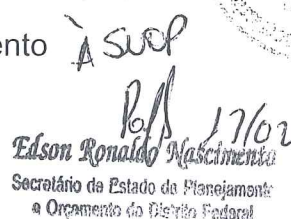 ento À SUOP
17/02
Edson Ronaldo Nascimento
Secretário de Estado de Planejamento
e Orçamento do Distrito Federal